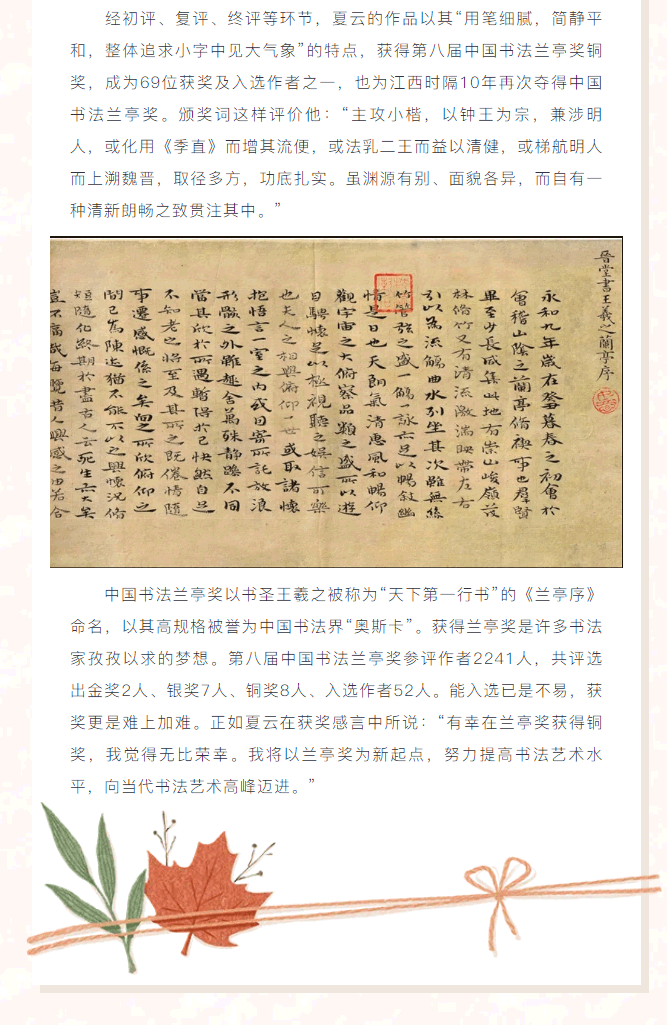 经初评、复评、终评等环节，夏云的作品以其“用笔细腻，简静平
和，整体追求小字中见大气象”的特点，获得第八届中国书法兰亭奖铜
奖，成为69位获奖及入选作者之一，也为江西时隔10年再次夺得中国
书法兰亭奖。颁奖词这样评价他：“主攻小楷，以钟王为宗，兼涉明
人，或化用《季直》而增其流便，或法乳二王而益以清健，或梯航明人
而上溯魏晋，取径多方，功底扎实。虽渊源有别、面貌各异，而自有一
种清新朗畅之致贯注其中。”
晉堂書王羲之蘭亭序
永和九年歲在癸丑暮春之初會於
會稽山陰之蘭亭脩禊事也羣賢
畢至少長咸集此地有崇山峻嶺茂
林脩竹又有清流激湍映帶左右
引以為流觴曲水列坐其次雖無絲
竹管弦之盛一觴一詠亦足以暢敘幽
情是日也天朗氣清惠風和暢仰
觀宇宙之大俯察品類之盛所以遊
目騁懷足以極視聽之娛信可樂
也夫人之相與俯仰一世或取諸懷
抱悟言一室之內或因寄所託放浪
形骸之外雖趣舍萬殊靜躁不同
當其欣於所遇暫得於己快然自足
不知老之將至及其所之既倦情隨
事遷感慨係之矣向之所欣俯仰之
間已為陳迹猶不能不以之興懷況脩
短隨化終期於盡古人云死生亦大矣
豈不痛哉每覽昔人興感之由若合
中国书法兰亭奖以书圣王羲之被称为“天下第一行书”的《兰亭序》
命名，以其高规格被誉为中国书法界“奥斯卡”。获得兰亭奖是许多书法
家孜孜以求的梦想。第八届中国书法兰亭奖参评作者2241人，共评选
出金奖2人、银奖7人、铜奖8人、入选作者52人。能入选已是不易，获
奖更是难上加难。正如夏云在获奖感言中所说：“有幸在兰亭奖获得铜
奖，我觉得无比荣幸。我将以兰亭奖为新起点，努力提高书法艺术水
平，向当代书法艺术高峰迈进。”